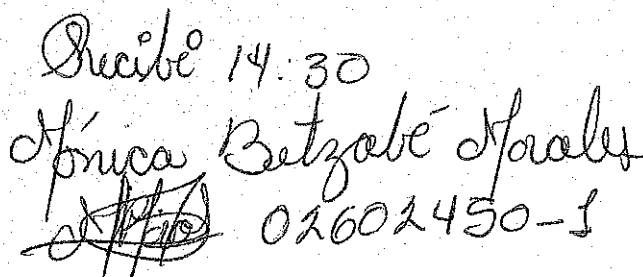 Recibé 14:30
Mónica Betzabé Morales
02602450-1